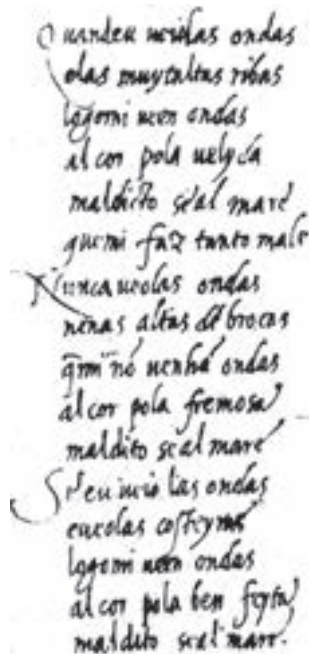 Quandeu veiolas ondas
elas muytaltas ribas
logomi ven ondas
al cor pola velyda
maldicto seal mare
quemi faz tanto male
Nunca veolas ondas
nenas altas de brocas
q̄mi nō venhā ondas
al cor pola fremosa
maldito seal mare
Sseu veio las ondas
eveolas costeyras
logomi ven ondas
al cor pola ben feyta
maldito seal mare.